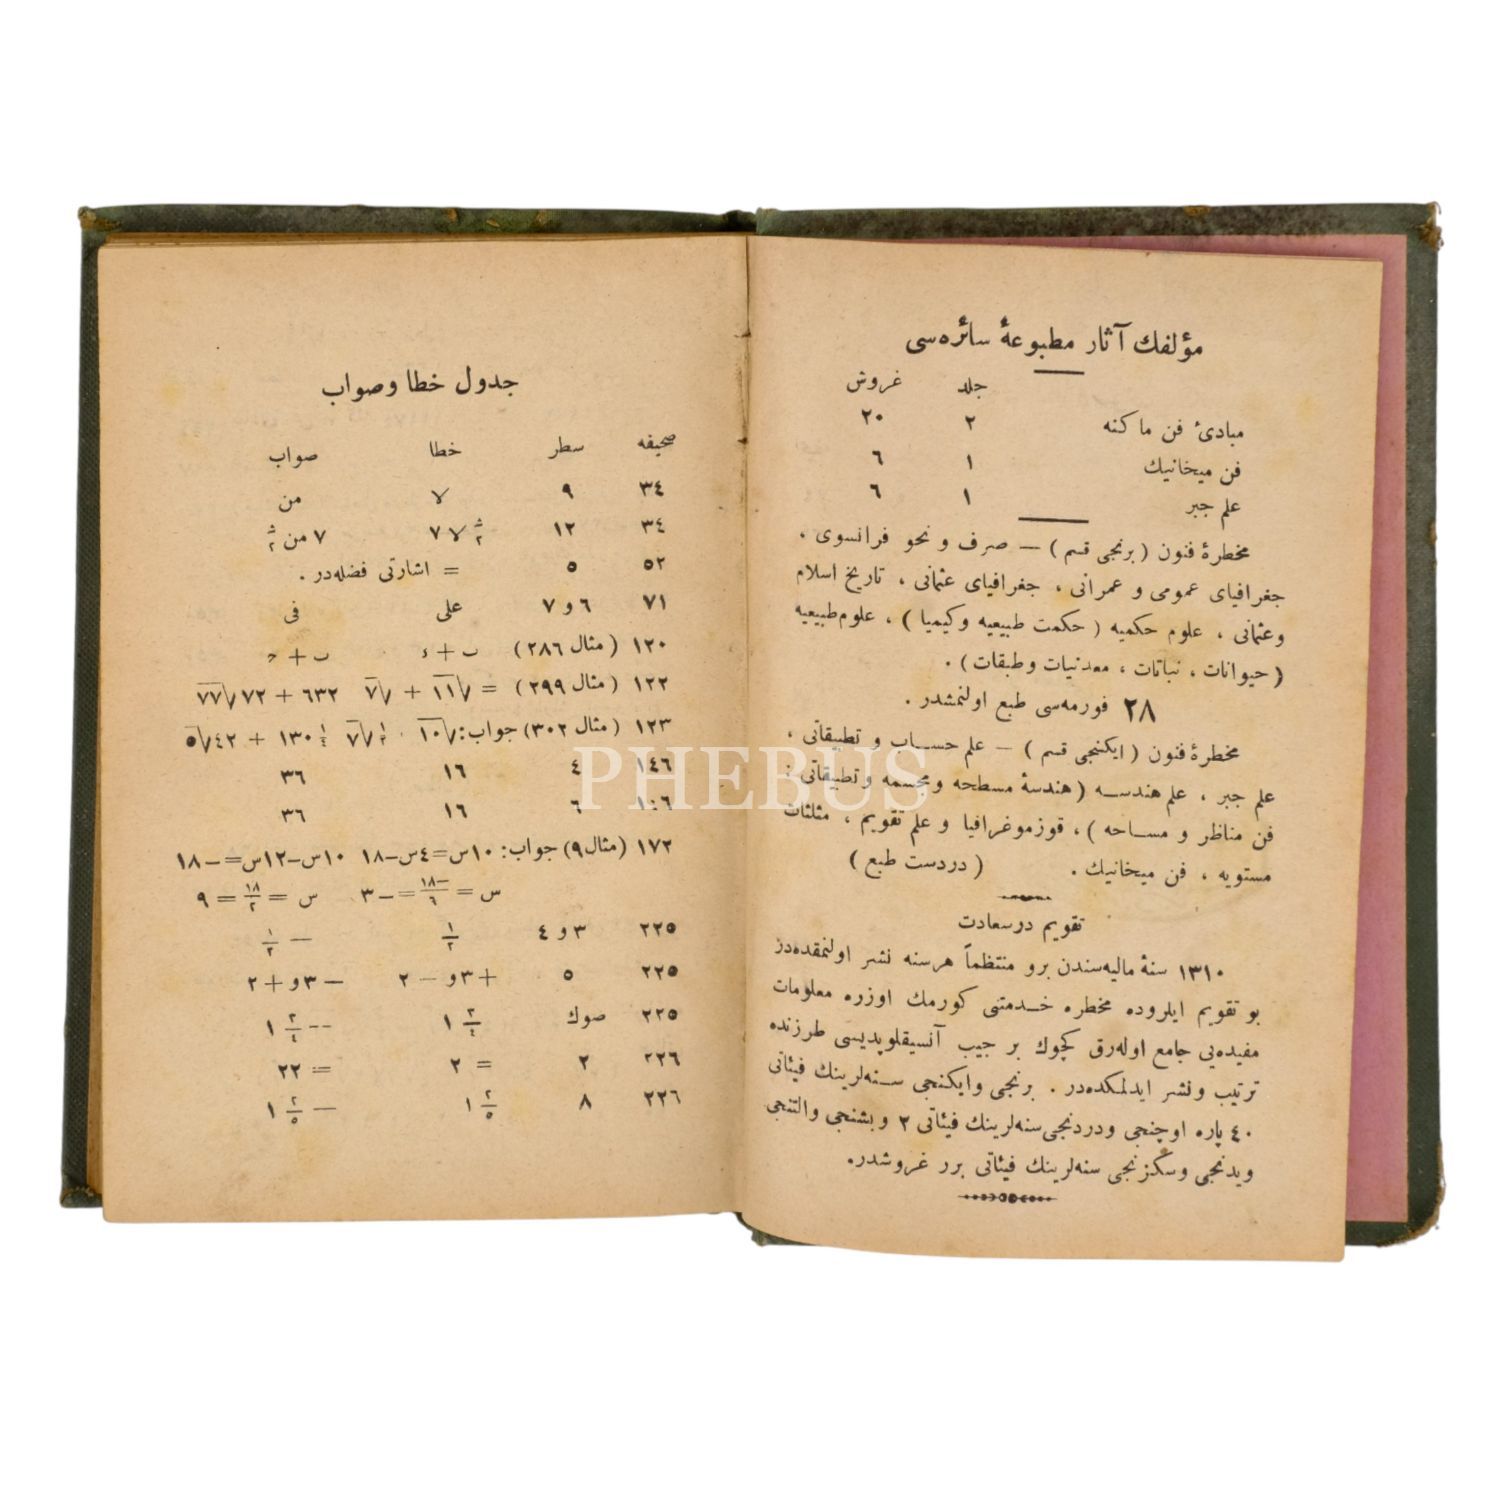 مؤلفك آثار مطبوعهٔ سائره‌سی
جلد غروش
مبادئ فن ماكنه ٢ ٢٠
فن ميخانيك ١ ٦
علم جبر ١ ٦
مخطرهٔ فنون (برنجی قسم) — صرف و نحو فرانسوی ،
جغرافیای عمومی و عمرانی ، جغرافیای عثمانی ، تاریخ اسلام
وعثمانی ، علوم حكمیه (حكمت طبیعیه وكیمیا) ، علوم طبیعیه
(حیوانات ، نباتات ، معدنیات وطبقات) .
٢٨ فورمه‌سی طبع اولنمشدر .
مخطرهٔ فنون (ایكنجی قسم) — علم حساب و تطبیقاتی ،
علم جبر ، علم هندسه (هندسهٔ مسطحه ومجسمه وتطبیقاتی ،
فن مناظر و مساحه) ، قوزموغرافیا و علم تقویم ، مثلثات
مستویه ، فن میخانیك . (دردست طبع)
تقویم درسعادت
١٣١٠ سنهٔ مالیه‌سندن برو منتظماً هرسنه نشر اولنمقده‌در
بو تقویم ایلروده مخطره خدمتنی كورمك اوزره معلومات
مفیده‌یی جامع اوله‌رق كچوك بر جیب آنسیقلوپدیسی طرزنده
ترتیب ونشر ایدلمكده‌در . برنجی وایكنجی سنه‌لرینك فیئاتی
٤٠ پاره اوچنجی ودردنجی سنه‌لرینك فیئاتی ٢ وبشنجی والتنجی
ویدنجی وسكزنجی سنه‌لرینك فیئاتی برر غروشدر.
جدول خطا وصواب
صحیفه سطر خطا صواب
٣٤ ٩ لا من
٣٤ ١٢ ٧ لا ث/٢ ٧ من ث/٢
٥٢ ٥ = اشارتی فضله‌در .
٧١ ٦ و ٧ علی فی
١٢٠ (مثال ٢٨٦)
١٢٢ (مثال ٢٩٩) = √١١ + √٧ ٦٣٢ + ٧٢ √٧٧
١٢٣ (مثال ٣٠٢) جواب: √١٠ . ١/٢ √٧ ١/٤ ١٣٠ + ٤٢ √٥
١٤٦ ٤ ١٦ ٣٦
١٤٦ ٦ ١٦ ٣٦
١٧٢ (مثال ٩) جواب: ١٠س=٤س-١٨ ١٠س-١٢س=-١٨
س = -١٨/٦ = -٣ س = ١٨/٢ = ٩
٢٢٥ ٣ و ٤ ١/٢ - ١/٢
٢٢٥ ٥ +٣ و - ٢ - ٣ و + ٢
٢٢٥ صوك ١ ٣/٤ -- ١ ٢/٤
٢٢٦ ٢ = ٢ = ٢٢
٢٢٦ ٨ ١ ٢/٥ - ١ ٢/٥
PHEBUS